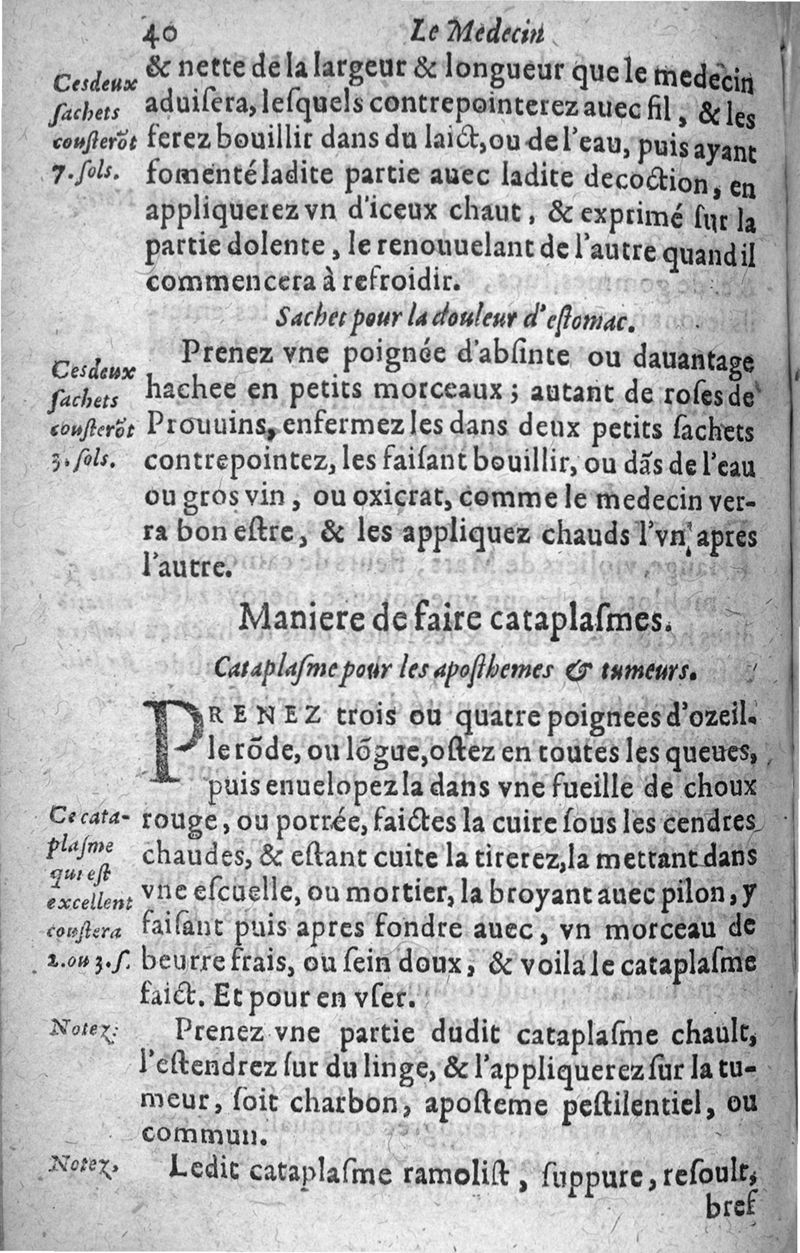 40 Le Medecin
& nette de la largeur & longueur que le medecin
aduiſera, leſquels contrepointerez auec fil, & les
ferez bouillir dans du laict, ou de l'eau, puis ayant
fomenté ladite partie auec ladite decoction, en
appliquerez vn d'iceux chaut, & exprimé ſur la
partie dolente, le renouuelant de l'autre quand il
commencera à refroidir.
Ces deux
ſachets
couſterõt
7. ſols.
Sachet pour la douleur d'eſtomac.
Prenez vne poignée d'abſinte ou dauantage
hachee en petits morceaux; autant de roſes de
Prouuins, enfermez les dans deux petits ſachets
contrepointez, les faiſant bouillir, ou dãs de l'eau
ou gros vin, ou oxicrat, comme le medecin ver-
ra bon eſtre, & les appliquez chauds l'vn apres
l'autre.
Ces deux
ſachets
couſterõt
3. ſols.
Maniere de faire cataplaſmes.
Cataplaſme pour les apoſthemes & tumeurs.
PRENEZ trois ou quatre poignees d'ozeil-
le rõde, ou lõgue, oſtez en toutes les queues,
puis enuelopez la dans vne fueille de choux
rouge, ou porrée, faictes la cuire ſous les cendres
chaudes, & eſtant cuite la tirerez, la mettant dans
vne eſcuelle, ou mortier, la broyant auec pilon, y
faiſant puis apres fondre auec, vn morceau de
beurre frais, ou ſein doux, & voila le cataplaſme
faict. Et pour en vſer.
Ce cata-
plaſme
qui eſt
excellent
couſtera
2. ou 3. ſ.
Prenez vne partie dudit cataplaſme chault,
l'eſtendrez ſur du linge, & l'appliquerez ſur la tu-
meur, ſoit charbon, apoſteme peſtilentiel, ou
commun.
Notez:
Ledit cataplaſme ramoliſt, ſuppure, reſoult,
Notez,
bref